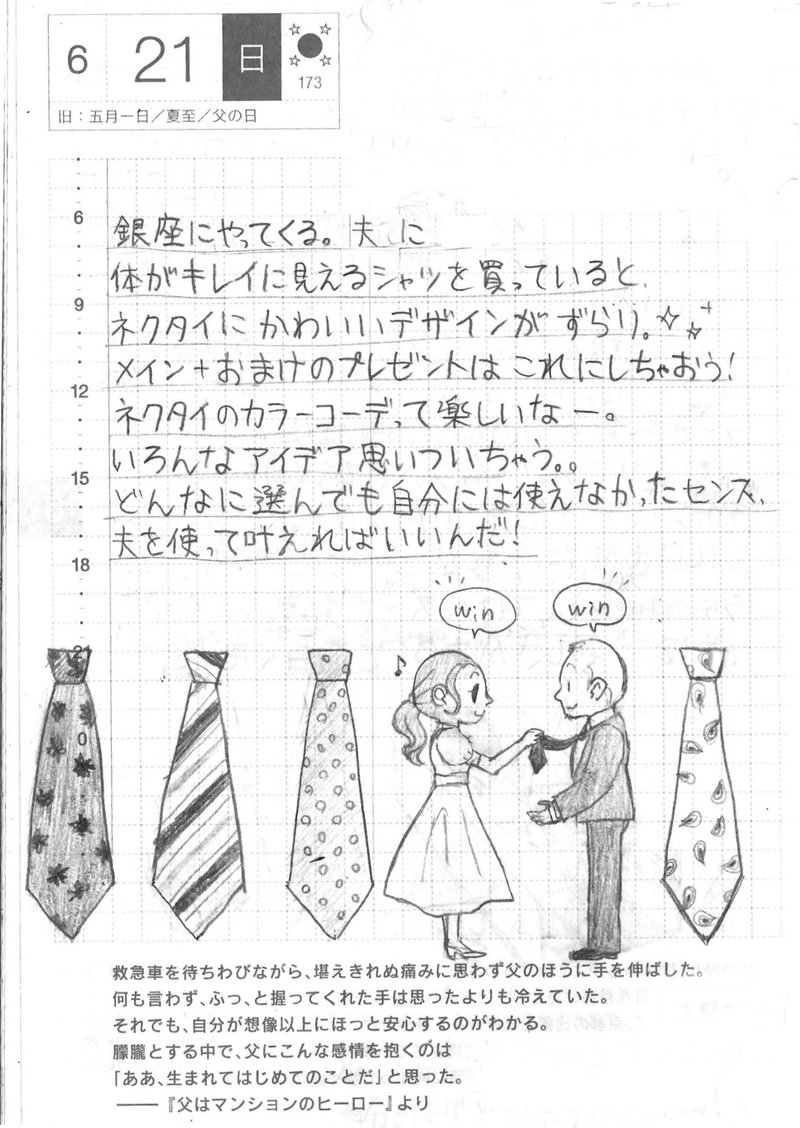 6 21 日
173
旧：五月一日／夏至／父の日
6
9
12
15
18
21
0
銀座にやってくる。夫に
体がキレイに見えるシャツを買っていると、
ネクタイにかわいいデザインがずらり。
メイン+おまけのプレゼントはこれにしちゃおう！
ネクタイのカラーコーデって楽しいなー。
いろんなアイデア思いついちゃう。。
どんなに選んでも自分には使えなかったセンス、
夫を使って叶えればいいんだ！
win
win
救急車を待ちわびながら、堪えきれぬ痛みに思わず父のほうに手を伸ばした。
何も言わず、ふっ、と握ってくれた手は思ったよりも冷えていた。
それでも、自分が想像以上にほっと安心するのがわかる。
朦朧とする中で、父にこんな感情を抱くのは
「ああ、生まれてはじめてのことだ」と思った。
――『父はマンションのヒーロー』より